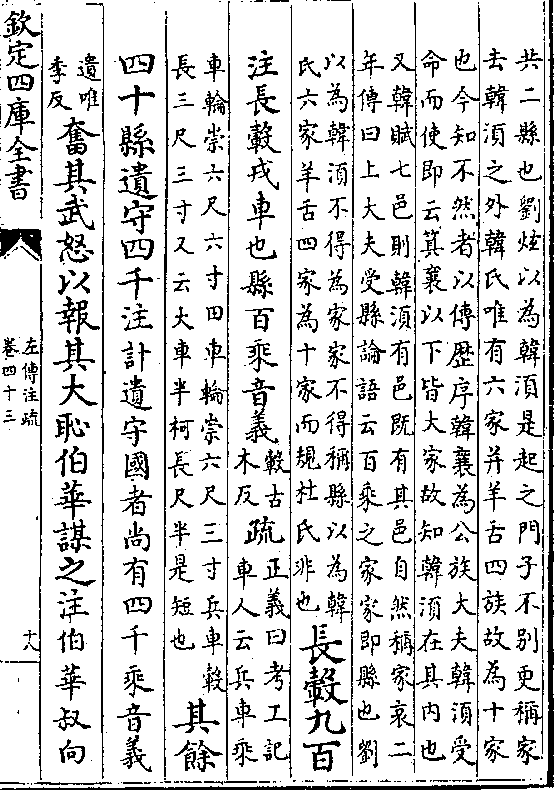 共二縣也劉炫以為韓湏是起之門子不别更稱家
去韓湏之外韓氏唯有六家并羊舌四族故為十家
也今知不然者以傳歴序韓襄為公族大夫韓湏受
命而使即云箕襄以下皆大家故知韓湏在其内也
又韓賦七邑則韓湏有邑既有其邑自然稱家哀二
年傳曰上大夫受縣論語云百乘之家家即縣也劉
以為韓湏不得為家家不得稱縣以為韓
氏六家羊舌四家為十家而規杜氏非也
長轂九百
注長轂戎車也縣百乘音義
轂古
木反
疏
正義曰考工記
車人云兵車乘
車輪崇六尺六寸田車輪崇六尺三寸兵車轂
長三尺三寸又云大車半柯長尺半是短也
其餘
四十縣遺守四千注計遺守國者尚有四千乘音義
遺唯
季反
奮其武怒以報其大恥伯華謀之注伯華叔向
欽定四庫全書
左傳注疏
卷四十三
十八